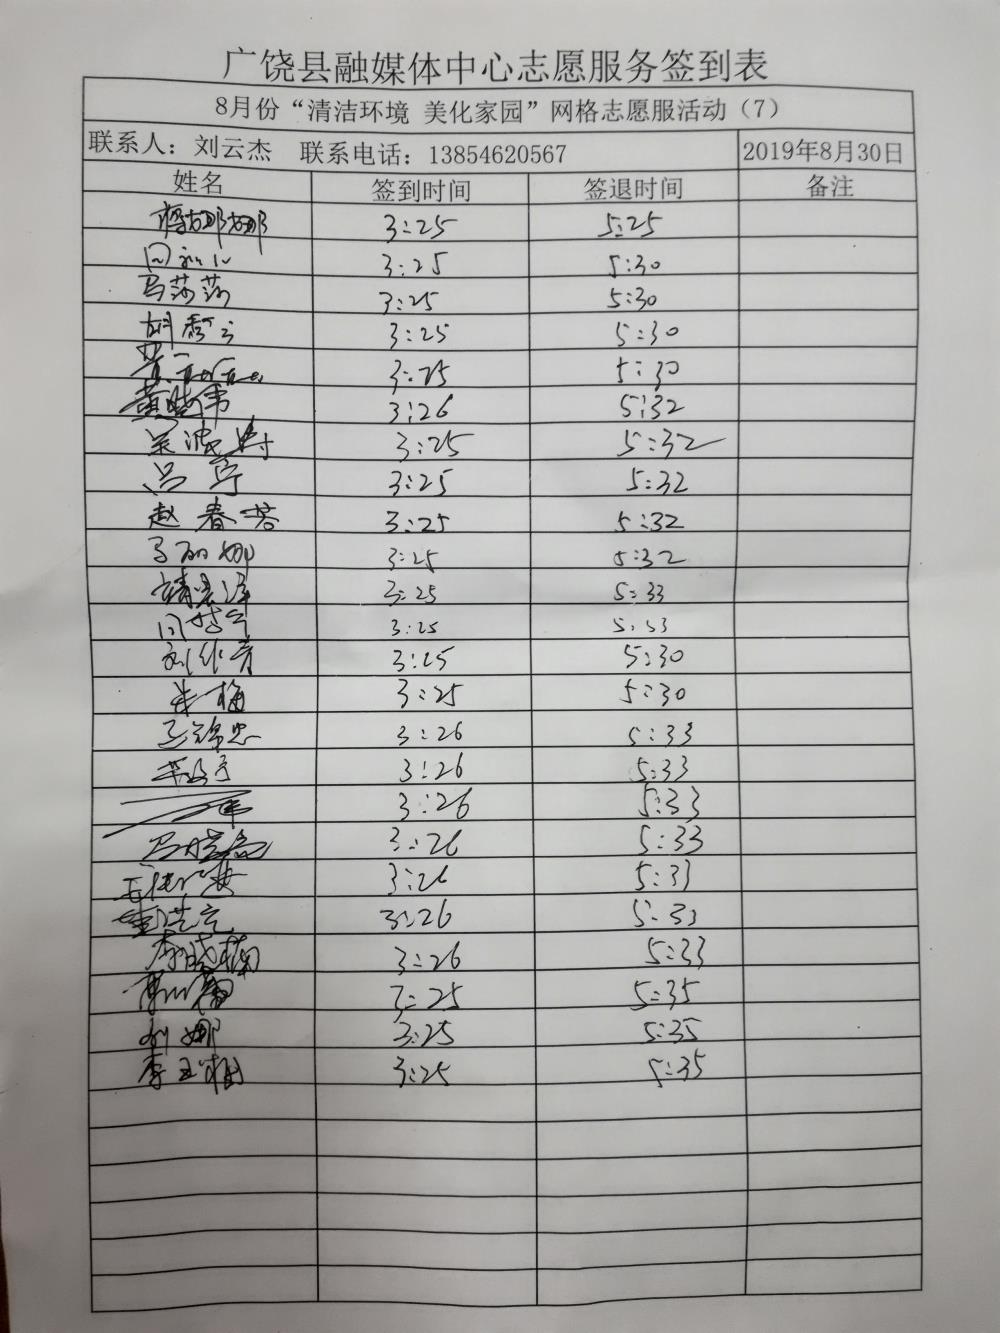 广饶县融媒体中心志愿服务签到表
8月份“清洁环境 美化家园”网格志愿服活动（7）
联系人：刘云杰 联系电话：13854620567 2019年8月30日
姓名 签到时间 签退时间 备注
蒋娜娜 3:25 5:25
3:25 5:30
马莎莎 3:25 5:30
胡秀云 3:25 5:30
3:25 5:30
黄晓伟 3:26 5:32
吴波涛 3:25 5:32
吕宁 3:25 5:32
赵春蓉 3:25 5:32
马丽娜 3:25 5:32
3:25 5:33
3:25 5:33
3:25 5:30
朱梅 3:25 5:30
王锦忠 3:26 5:33
3:26 5:33
3:26 5:33
3:26 5:33
3:26 5:33
3:26 5:33
李晓楠 3:26 5:33
3:25 5:35
刘娜 3:25 5:35
李玉梅 3:25 5:35